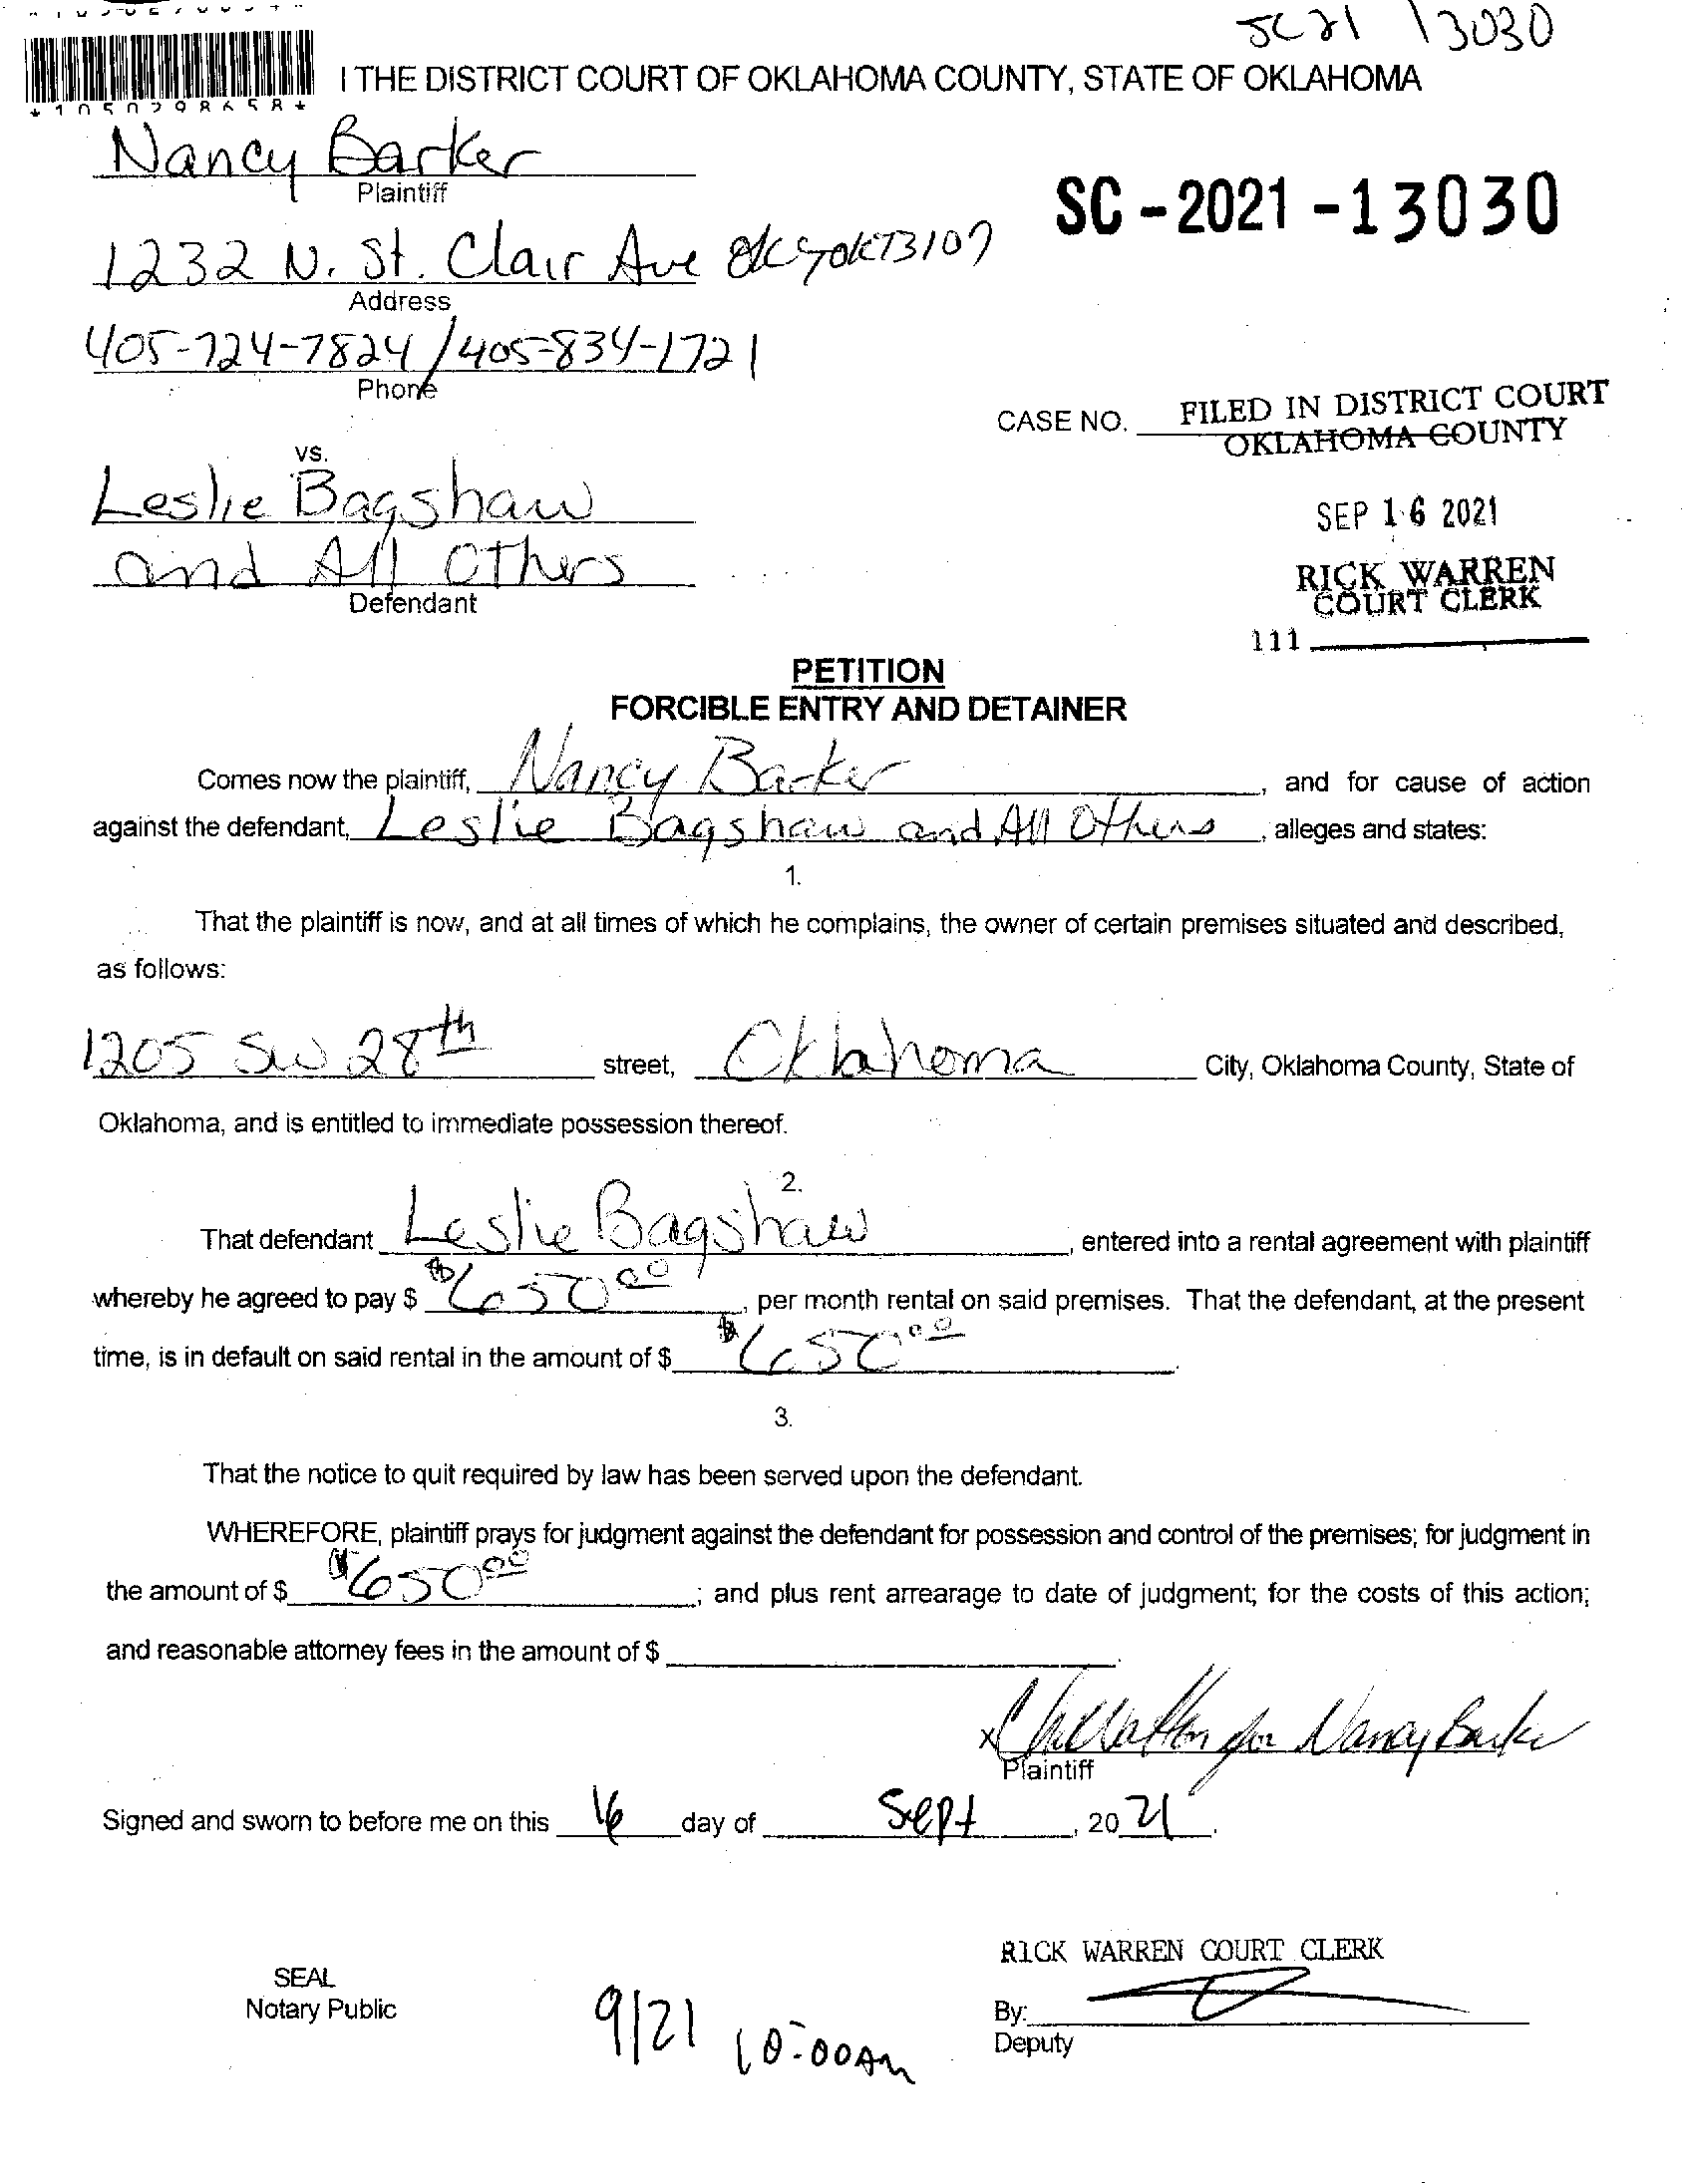 SC 21 13030
I THE DISTRICT COURT OF OKLAHOMA COUNTY, STATE OF OKLAHOMA
*1050298658*
Nancy Barker
Plaintiff
SC-2021-13030
1232 N. St. Clair Ave OKC OK 73107
Address
405-724-7824/405-834-1721
Phone
CASE NO. FILED IN DISTRICT COURT
OKLAHOMA COUNTY
vs.
Leslie Bagshaw
SEP 16 2021
and All Others
Defendant
RICK WARREN
COURT CLERK
111
PETITION
FORCIBLE ENTRY AND DETAINER
Comes now the plaintiff, Nancy Barker, and for cause of action
against the defendant, Leslie Bagshaw and All Others, alleges and states:
1.
That the plaintiff is now, and at all times of which he complains, the owner of certain premises situated and described,
as follows:
1205 SW 28th street, Oklahoma City, Oklahoma County, State of
Oklahoma, and is entitled to immediate possession thereof.
2.
That defendant Leslie Bagshaw, entered into a rental agreement with plaintiff
whereby he agreed to pay $ $650.00, per month rental on said premises. That the defendant, at the present
time, is in default on said rental in the amount of $ $650.00.
3.
That the notice to quit required by law has been served upon the defendant.
WHEREFORE, plaintiff prays for judgment against the defendant for possession and control of the premises; for judgment in
the amount of $ $650.00; and plus rent arrearage to date of judgment; for the costs of this action;
and reasonable attorney fees in the amount of $ .
x for Nancy Barker
Plaintiff
Signed and sworn to before me on this 16 day of Sept, 20 21.
RICK WARREN COURT CLERK
SEAL
Notary Public
9/21 10:00AM
By:
Deputy